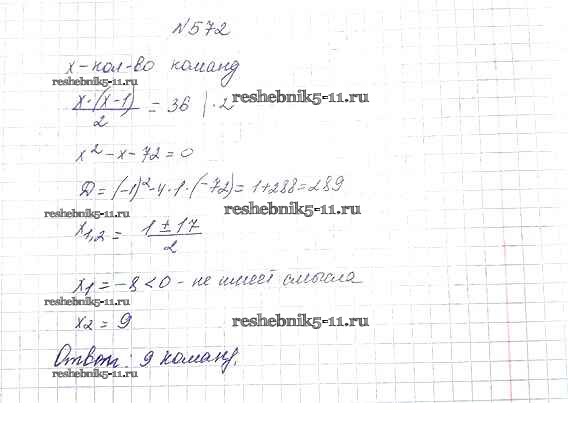 №572
x – кол-во команд
reshebnik5-11.ru
x·(x-1)/2 = 36 |·2 reshebnik5-11.ru
x² - x - 72 = 0
D = (-1)² - 4·1·(-72) = 1+288 = 289
reshebnik5-11.ru reshebnik5-11.ru
x₁,₂ = (1 ± 17)/2
x₁ = -8 < 0 - не имеет смысла
reshebnik5-11.ru
x₂ = 9 reshebnik5-11.ru
Ответ: 9 команд.
reshebnik5-11.ru